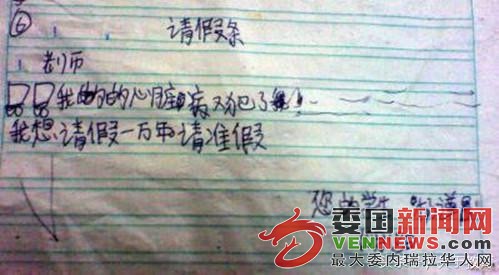 ⑥ 请假条
老师
我的的心脏病又犯了
我想请假一万年请准假
您的学生
委国新闻网
VENNEWS.COM
最大委内瑞拉华人网